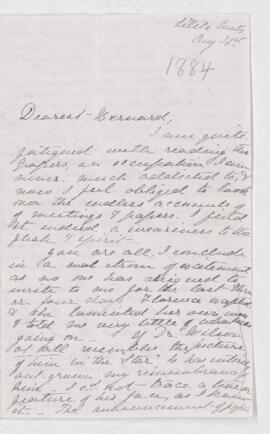 Aug 31st
1884
Dearest Bernard,
I am quite
fatigued with reading the
papers, an occupation I am
never much addicted to, &
now I feel obliged to look
over the endless accounts of
of meetings & papers. I find
it indeed a weariness to the
flesh & spirit.
You are all, I conclude
in a maelstrom of excitement
as no one has deigned to
write to me for the last three
or four days. Florence
& she lamented her own
& told me very little of what was
going on. If Dr. Wilson
at all resembles the picture
of him in the "Star" he has entirely
out-grown my remembrance of
him. I cd. not trace a line or
feature of his face, as I knew
it. The announcement of